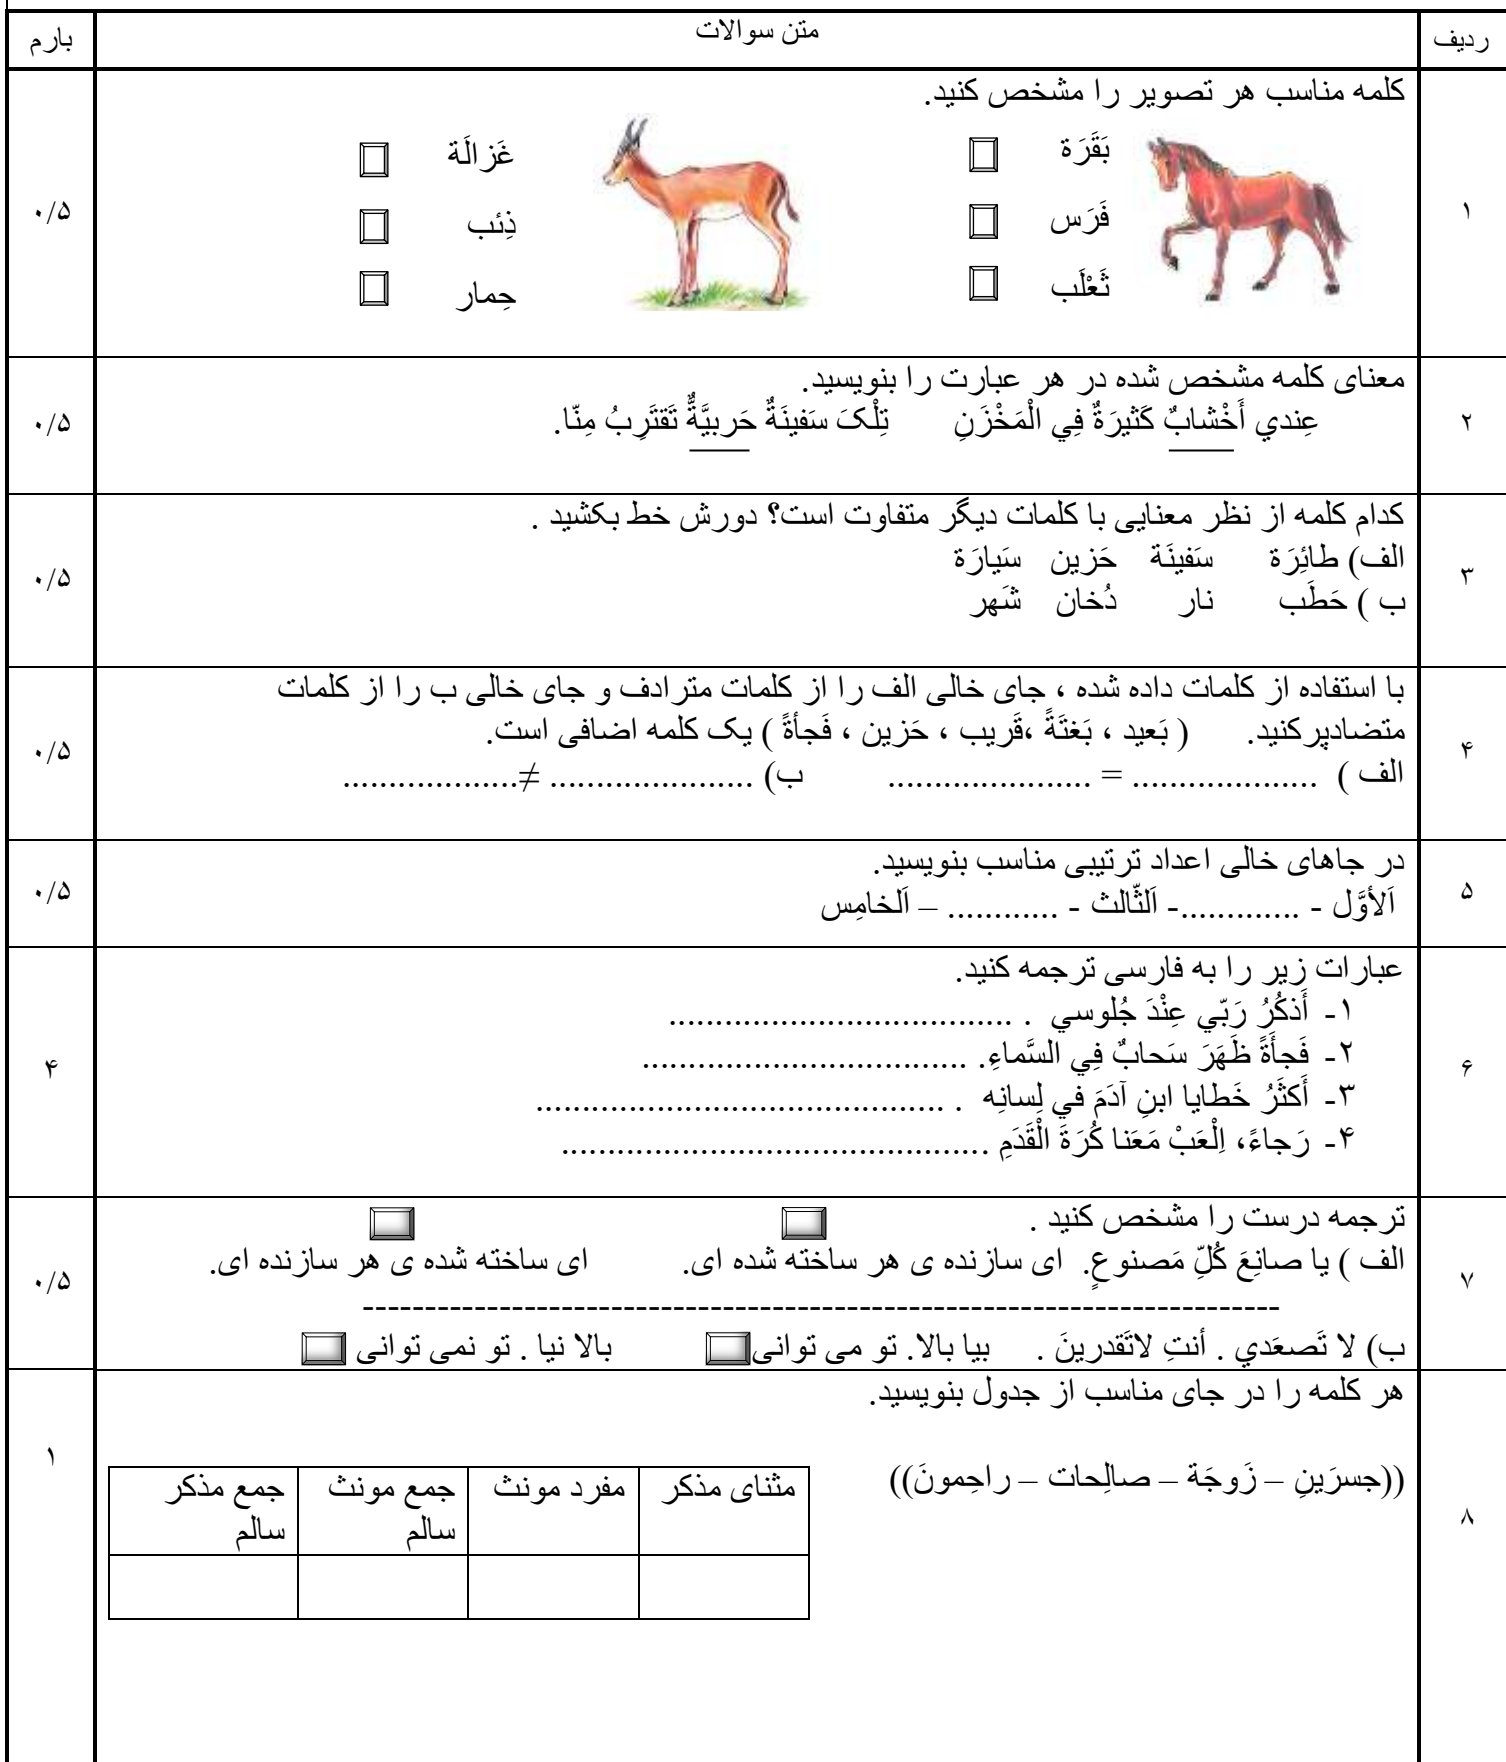 ردیف متن سوالات بارم
۱ کلمه مناسب هر تصویر را مشخص کنید. ۰/۵
بَقَرَة غَزالَة
فَرَس ذِئب
ثَعْلَب حِمار
۲ معنای کلمه مشخص شده در هر عبارت را بنویسید. ۰/۵
عِندي أَخْشابٌ كَثيرَةٌ فِي الْمَخْزَنِ تِلْکَ سَفينَةٌ حَربيَّةٌ تَقتَرِبُ مِنّا.
۳ کدام کلمه از نظر معنایی با کلمات دیگر متفاوت است؟ دورش خط بکشید . ۰/۵
الف) طائِرَة سَفينَة حَزين سَيارَة
ب ) حَطَب نار دُخان شَهر
۴ با استفاده از کلمات داده شده ، جای خالی الف را از کلمات مترادف و جای خالی ب را از کلمات ۰/۵
متضادپرکنید. ( بَعيد ، بَغتَةً ،قَريب ، حَزين ، فَجأةً ) یک کلمه اضافی است.
الف ) .................... = ...................... ب) ...................... ≠...................
۵ در جاهای خالی اعداد ترتیبی مناسب بنویسید. ۰/۵
اَلأوَّل - .............- اَلثّالث - ............ – اَلخامِس
۶ عبارات زیر را به فارسی ترجمه کنید. ۴
۱- أَذكُرُ رَبّي عِنْدَ جُلوسي . .....................................
۲- فَجأَةً ظَهَرَ سَحابٌ فِي السَّماءِ. ...................................
۳- أَكثَرُ خَطايا ابنِ آدَمَ في لِسانِه . ............................................
۴- رَجاءً، اِلْعَبْ مَعَنا كُرَةَ الْقَدَمِ ..............................................
۷ ترجمه درست را مشخص کنید . ۰/۵
الف ) يا صانِعَ كُلِّ مَصنوعٍ. ای سازنده ی هر ساخته شده ای. ای ساخته شده ی هر سازنده ای.
---------------------------------------------------------------------------
ب) لا تَصعَدي . أنتِ لاتَقدرينَ . بیا بالا. تو می توانی بالا نیا . تو نمی توانی
۸ هر کلمه را در جای مناسب از جدول بنویسید. ۱
((جسرَينِ – زَوجَة – صالِحات – راحِمونَ))
مثنای مذکر مفرد مونث جمع مونث جمع مذکر
سالم سالم